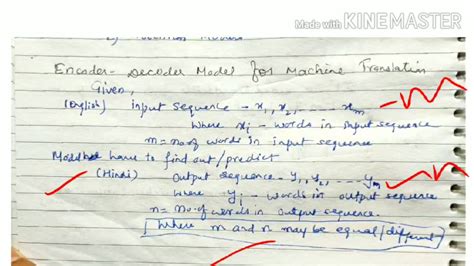 Made with KINEMASTER
Encoder-Decoder Model for Machine Translation
Given,
(English) input sequence - x₁, x₂, ------ xₘ
where xᵢ - words in input sequence
m = no of words in input sequence
have to find out/predict
(Hindi) Output sequence - y₁, y₂, --- yₘ
where yᵢ - words in output sequence
n = No. of words in output sequence.
where m and n may be equal/different